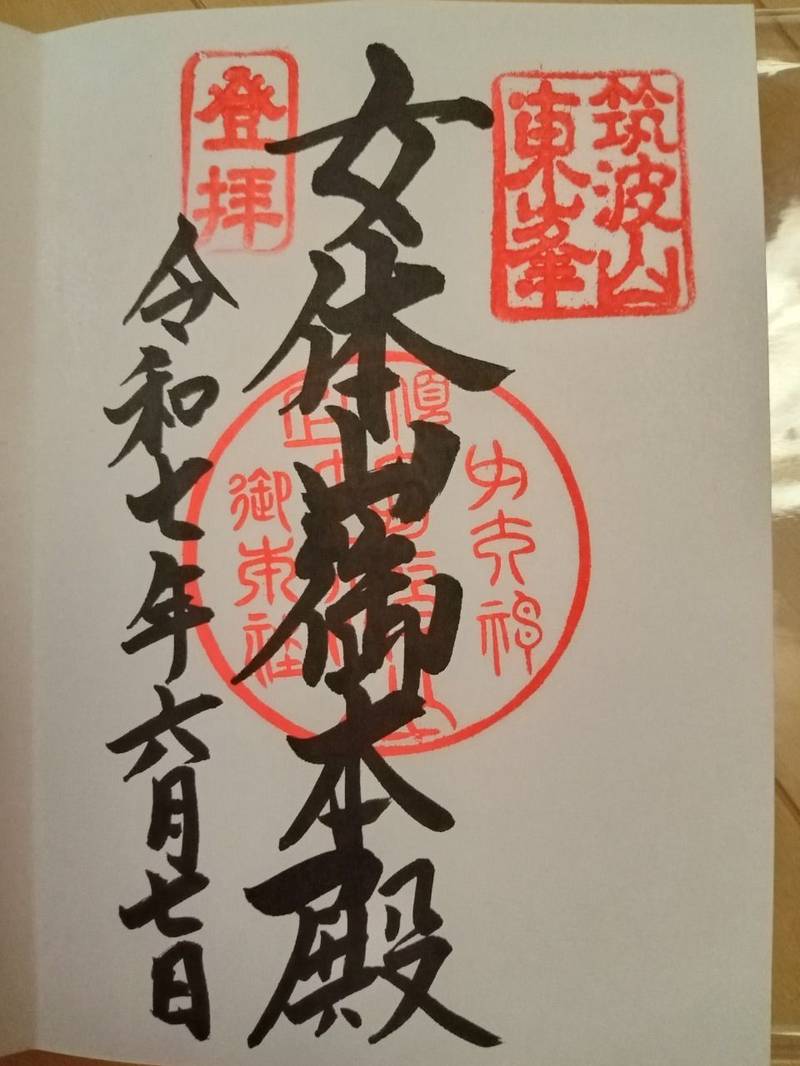 筑波山
東峯
女体山御本殿
御本社
登拝
令和七年六月七日